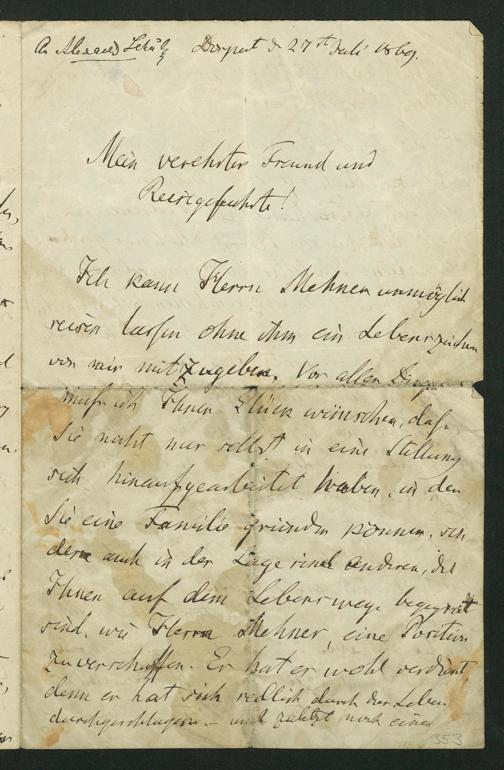 An Alexander Schultz Dorpat d 27st Juli 1869.
Mein verehrter Freund und
Reisegefährte!
Ich kann Herrn Mehner unmöglich
reisen lassen ohne ihm ein Lebenszeichen
von mir mitzugeben. Vor allen Dingen
muß ich Ihnen Glück wünschen, daß
Sie nicht nur selbst in eine Stellung
sich hinaufgearbeitet haben, in der
Sie eine Familie gründen können, son
dern auch in der Lage sind anderen, die
Ihnen auf dem Lebenswege begegnet
sind, wie Herrn Mehner, eine Position
zu verschaffen. Er hat er wohl verdient
denn er hat sich redlich durch das Leben
durchgeschlagen – und zuletzt noch einen
353